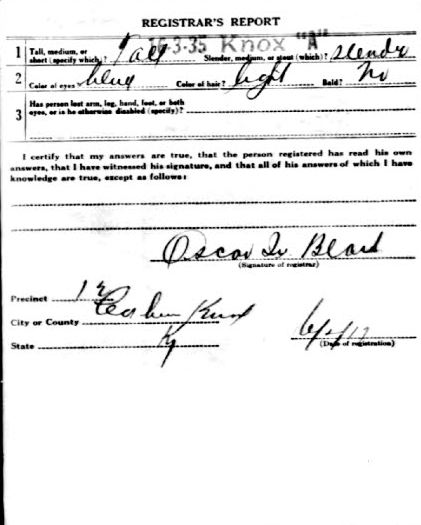 REGISTRAR'S REPORT
16-3-35 Knox "A"
1 Tall, medium, or short (specify which)? Tall Slender, medium, or stout (which)? slendr
2 Color of eyes? blue Color of hair? light Bald? No
3 Has person lost arm, leg, hand, foot, or both
eyes, or is he otherwise disabled (specify)?
I certify that my answers are true, that the person registered has read his own
answers, that I have witnessed his signature, and that all of his answers of which I have
knowledge are true, except as follows:
Oscar Beard
(Signature of registrar)
Precinct
City or County Corbin Knox
State Ky
(Date of registration)